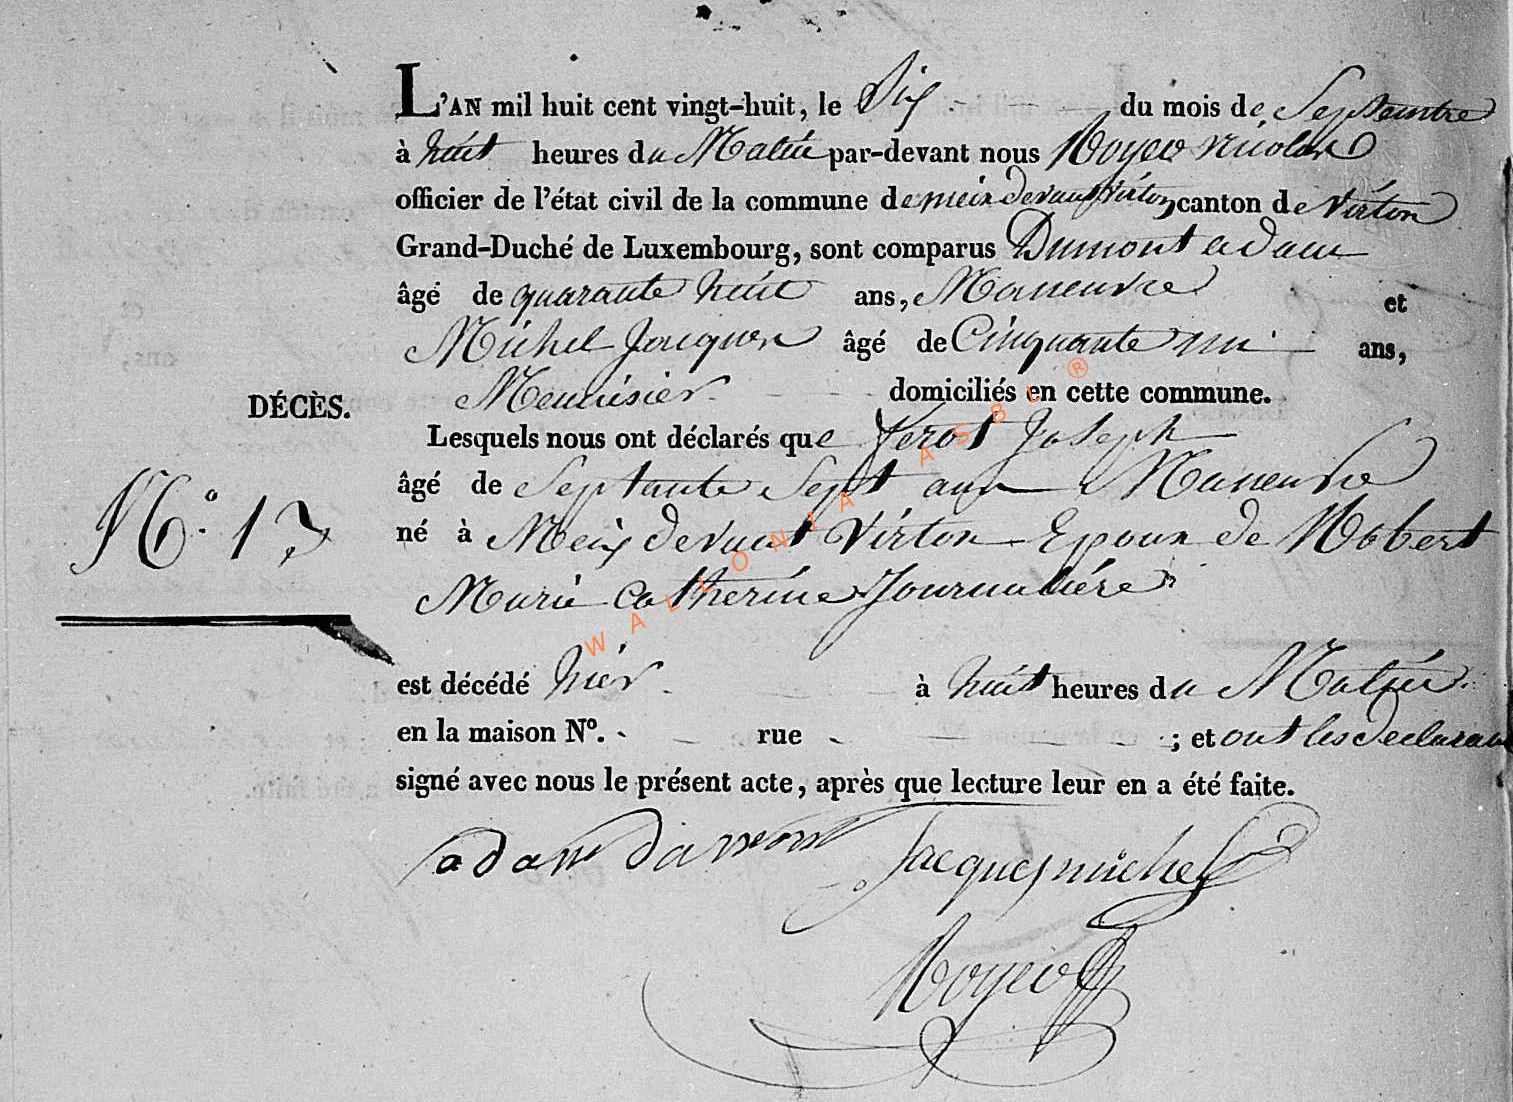 L'AN mil huit cent vingt-huit, le Six du mois de Septembre
à huit heures du Matin par-devant nous Royer Nicolas
officier de l'état civil de la commune de meix devant virton canton de Virton
Grand-Duché de Luxembourg, sont comparus Dumont adam
âgé de quarante huit ans, Maneuvre et
Michel Jacques âgé de Cinquante un ans,
Menuisier domiciliés en cette commune.
DÉCÈS.
Lesquels nous ont déclarés que Ferot Joseph
âgé de Septante Sept ans Maneuvre
N.° 13
né à Meix devant Virton Epoux de Robert
Marie Catherine Journalière
est décédé hier à huit heures du Matin
en la maison N°. rue ; et ont les declarans
signé avec nous le présent acte, après que lecture leur en a été faite.
adam dumont Jacques michel
Royer
WALLONIA ASBL ®